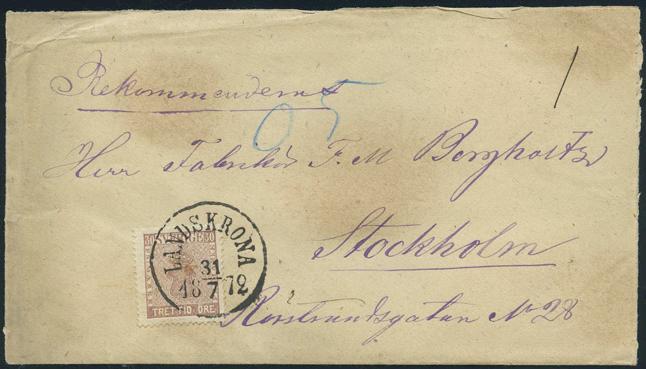 Rekommenderas
95
Herr Fabrikör F. M Bergholtz
Stockholm
Rörstrandsgatan No 28
30 SVERIGE 30
TRETTIO ÖRE
LANDSKRONA
31
18 7 72